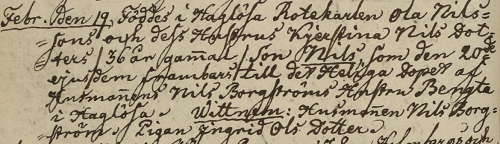 Febr. den 19 Föddes i Haglösa Rotekarlen Ola Nils-
=sons och dess Hustrus Kjerstina Nils Dot-
=ters /36 år gammal/ Son Nils som den 20de
ejusdem frambars till det Heliga Dopet af
Husmannens Nils Borgströms Hustru Bengta
i Haglösa. Wittnen: Husmannen Nils Borg-
=ström Pigan Ingrid Ols Dotter.